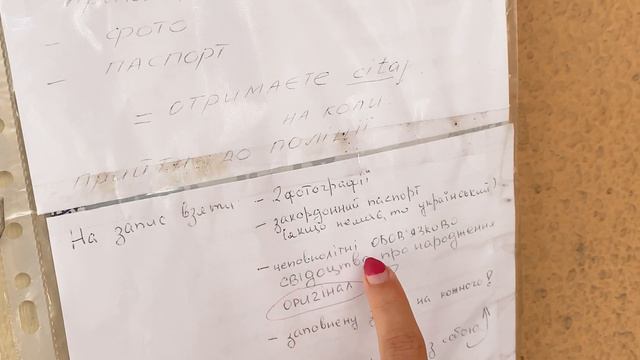 - фото
- паспорт
= отримаєте citaj
на коли
прийти до поліції
На запис взяти: - 2 фотографії
- закордонний паспорт
(якщо нема, то український)
- неповнолітні ОБОВ'ЯЗКОВО
свідоцтво про народження
ОРИГІНАЛ
- заповнену на кожного!
з собою